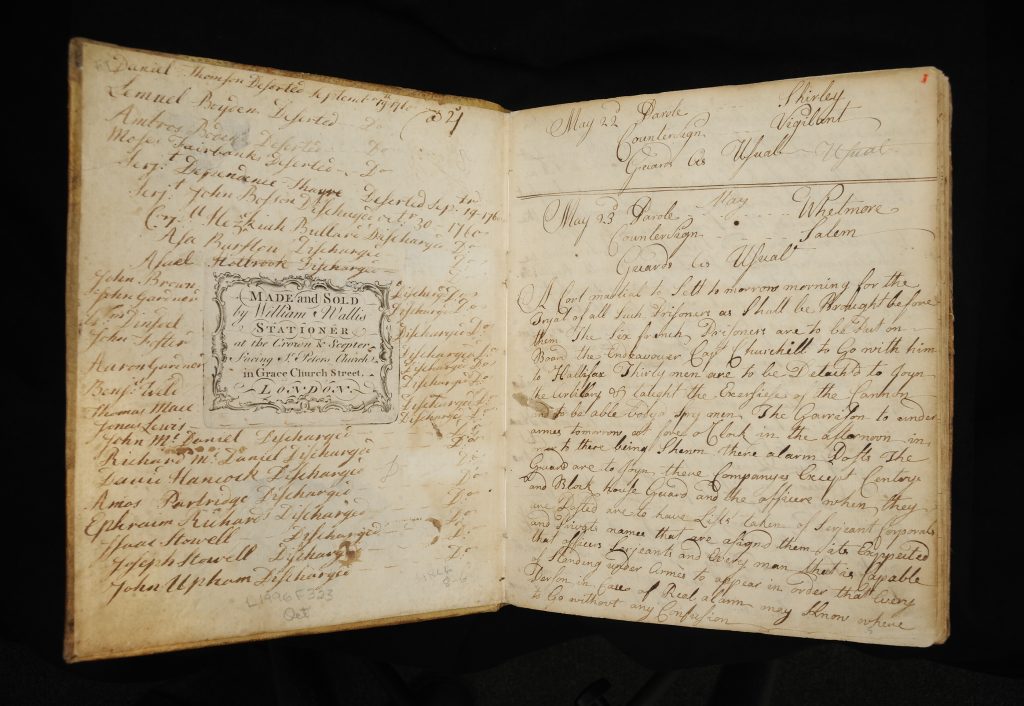 Daniel Thomson Deserted September 19th 1760
Lemuel Boyden Deserted Do
Ambros Deserted Do
Moses Fairbanks Deserted Do
Serjt Dependance Thayre Deserted Sep. 19 1760
Serjt John Bosson Discharged 30 1760
Corp.ll Hezekiah Bullard Discharged Do
Asa Discharged Do
Asael Holbrook Discharged
John Brown Discharged Do
John Gardner Discharged Do
Discharged Do
John Foster Discharged Do
Aaron Gardner Discharged Do
Benj.n Discharged Do
Thomas Discharged Do
Jonas Lewis Discharged Do
John Mc Daniel Discharged Do
Richard Mc Daniel Discharged Do
David Hancock Discharged Do
Amos Partridge Discharged Do
Ephraim Richards Discharged Do
Isaac Stowell Discharged Do
Joseph Stowell Discharged Do
John Upham Discharged
MADE and SOLD
by William Wallis
STATIONER
at the Crown & Scepter
Facing St. Peters Church
in Grace Church Street.
LONDON.
L1996F323
1
May 22 Parole Shirley
CounterSign Vigillent
Guards as Usual Usual
May 23 Parole May Whetmore
CounterSign Salem
Guards as Usual
A Cort martial to Sett to morrow morning for the
Tryal of all Such Prisoners as Shall be Brought before
them The Six french Prisoners are to be Put on
Board the Endeavouer Capt Churchill to Go with him
to Hallifax Thirty men are to be Detach'd to Joyn
the & taught the of the Cannon
and to be able Bodys spry men The Garrison to under
armes tomorrow att four o Clock in the afternoon in
to there being Shewn there alarm Posts The
Guard are to Joyn there Companyes Except Centerys
and Block house Guard and the officers when they
are Posted are to have Lists taken of Serjeant Corporals
and Privats names that are asignd them its Expected
that officers Serjeants and Every man that is Capable
of Standing under Armes to appear in order that Every
Person in Case of Real alarm may Know where
to Go without any Confusion